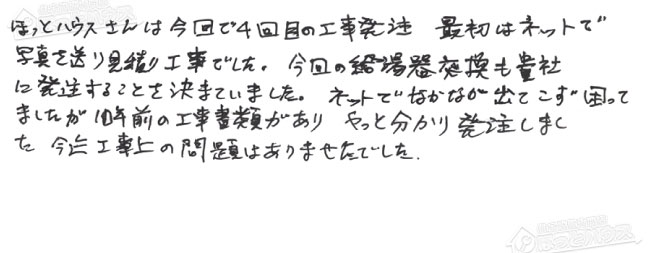 ほっとハウスさんは今回で4回目の工事発注 最初はネットで
写真を送り見積り工事でした。今回の給湯器交換も貴社
に発注することを決まていました。ネットでなかなか出てこず困って
ましたが10年前の工事書類があり やっと分かり発注しまし
た 今回工事上の問題はありませたでした.